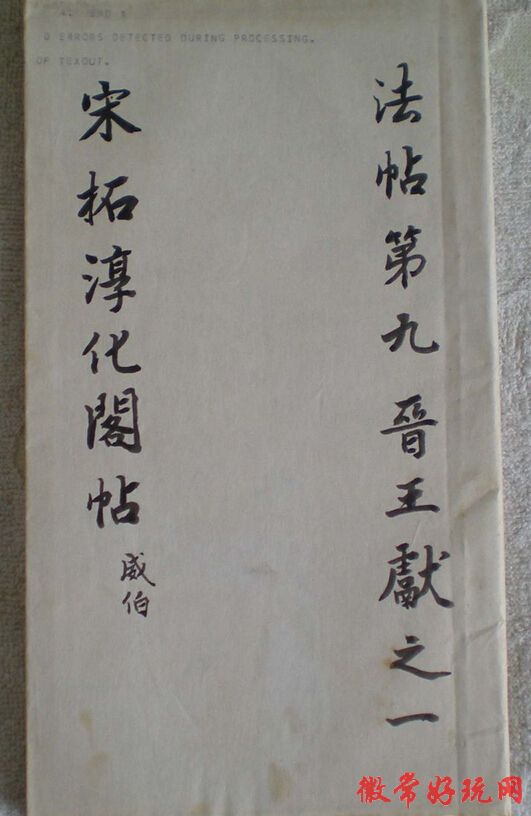 0 ERRORS DETECTED DURING PROCESSING.
OF TEXOUT.
法帖第九 晉王獻之一
宋柘淳化閣帖
威伯
徽常好玩网